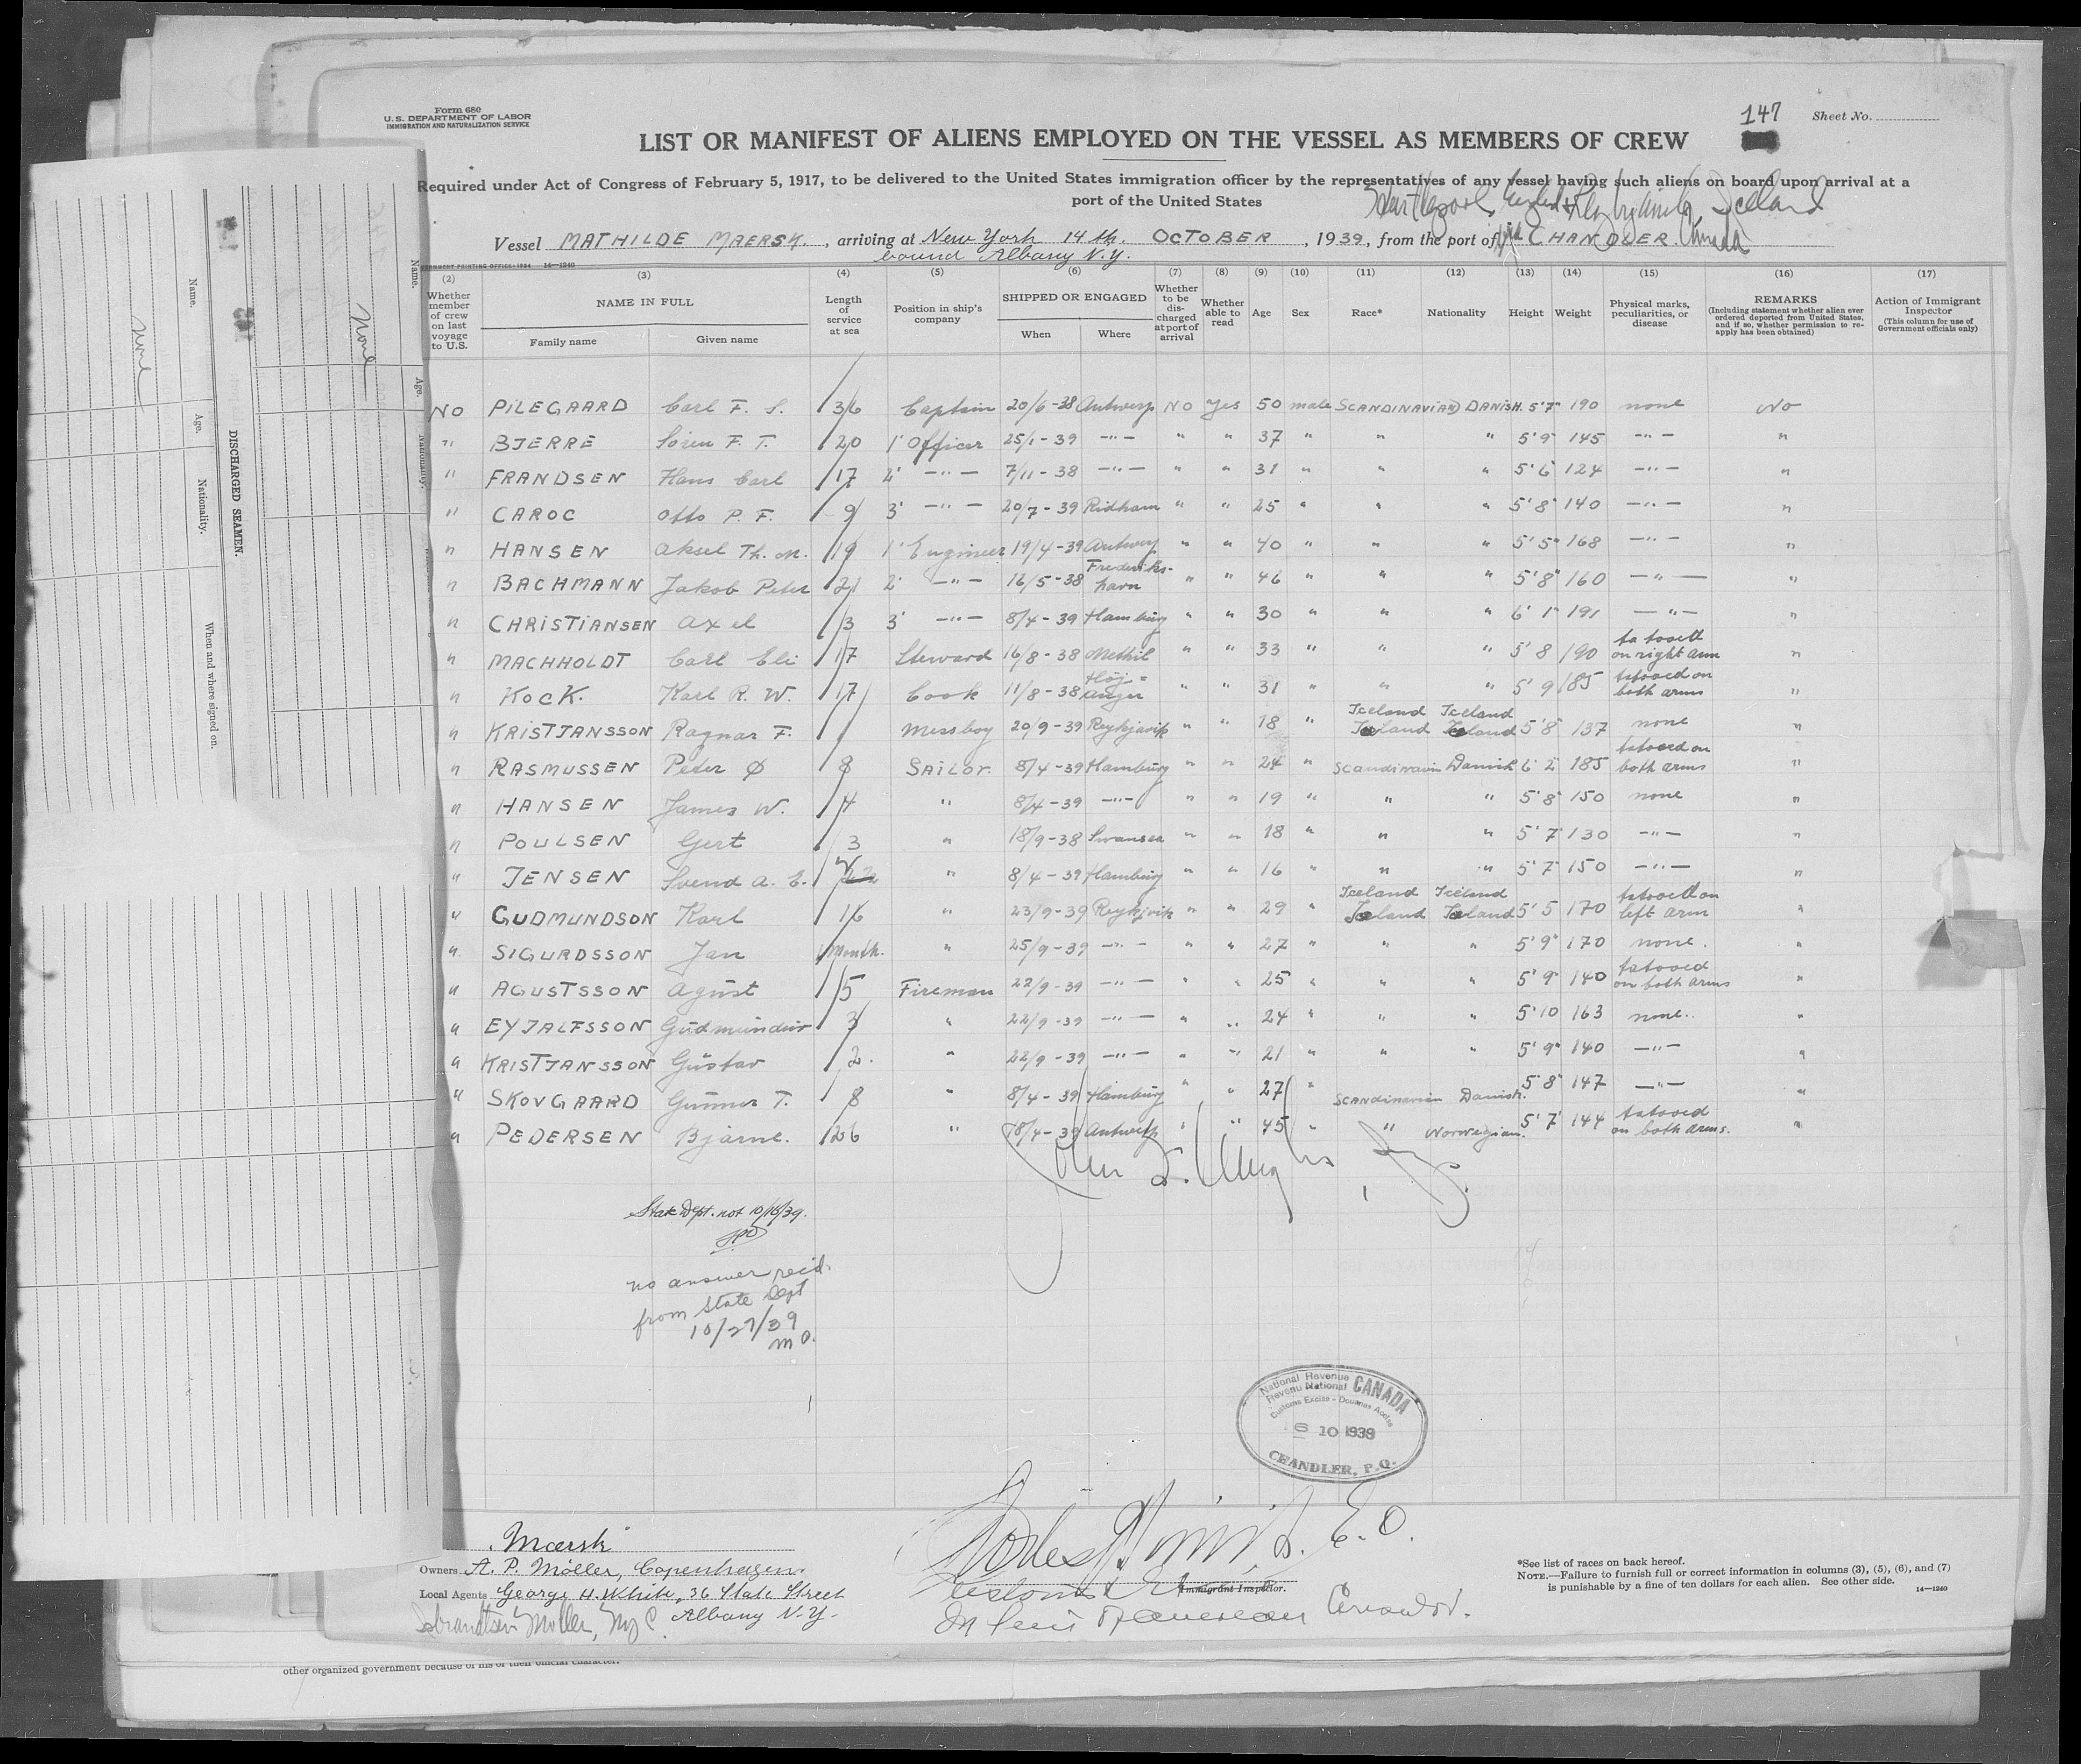 Form 680
U.S. DEPARTMENT OF LABOR
IMMIGRATION AND NATURALIZATION SERVICE
147
Sheet No.
LIST OR MANIFEST OF ALIENS EMPLOYED ON THE VESSEL AS MEMBERS OF CREW
Required under Act of Congress of February 5, 1917, to be delivered to the United States immigration officer by the representatives of any vessel having such aliens on board upon arrival at a
port of the United States
Hartlepool, England Iceland
Vessel MATHILDE MAERSK, arriving at New York 14 th. OCTOBER, 1939, from the port of via CHANDLER. Canada
bound Albany N.Y.
(2) (3) (4) (5) (6) (7) (8) (9) (10) (11) (12) (13) (14) (15) (16) (17)
Whether member of crew on last voyage to U.S. NAME IN FULL Family name Given name Length of service at sea Position in ship's company SHIPPED OR ENGAGED When Where Whether to be discharged at port of arrival Whether able to read Age Sex Race* Nationality Height Weight Physical marks, peculiarities, or disease REMARKS (Including statement whether alien ever ordered deported from United States, and if so, whether permission to re-apply has been obtained) Action of Immigrant Inspector (This column for use of Government officials only)
No PILEGAARD Carl F. S. 36 Captain 20/6-38 Antwerp NO yes 50 male SCANDINAVIAN DANISH. 5'7" 190 none No
" BJERRE Sören F. T. 20 1' Officer 25/1-39 -"- " " 37 " " " 5'9" 145 -"- "
" FRANDSEN Hans Carl 17 2' -"- 7/11-38 -"- " " 31 " " " 5'6" 124 -"- "
" CAROC Otto P. F. 9 3' -"- 20/7-39 Ridham " " 25 " " " 5'8" 140 -"- "
" HANSEN Aksel Th. M. 19 1' Engineer 19/4-39 Antwerp " " 40 " " " 5'5" 168 -"- "
" BACHMANN Jakob Peter 21 2' -"- 16/5-38 Frederikshavn " " 46 " " " 5'8" 160 -"- "
" CHRISTIANSEN Axel 3 3' -"- 8/4-39 Hamburg " " 30 " " " 6' 1" 191 -"- "
" MACHHOLDT Carl Eli 17 Steward 16/8-38 Methil " " 33 " " " 5' 8 190 tatooed on right arm "
" KOCK. Karl R. W. 17 Cook 11/8-38 Höjanger " " 31 " " " 5' 9 185 tatooed on both arms "
" KRISTJANSSON Ragnar F. 1 Messboy 20/9-39 Reykjavik " " 18 " Iceland Iceland 5'8" 137 none "
" RASMUSSEN Peter Ø 8 SAILOR. 8/4-39 Hamburg " " 24 " Scandinavian Danish 6' 2" 185 tatooed on both arms "
" HANSEN James W. 4 " 8/4-39 -"- " " 19 " " " 5'8" 150 none "
" POULSEN Gert 3 " 18/9-38 Swansea " " 18 " " " 5'7" 130 -"- "
" JENSEN Svend A. E. " 8/4-39 Hamburg " " 16 " " " 5'7" 150 -"- "
" GUDMUNDSON Karl 16 " 23/9-39 Reykjavik " " 29 " Iceland Iceland 5'5 170 tatooed on left arm "
" SIGURDSSON Jan 1 month. " 25/9-39 -"- " " 27 " " " 5'9" 170 none. "
" AGUSTSSON Agúst 5 Fireman 22/9-39 -"- " " 25 " " " 5'9" 140 tatooed on both arms "
" EYJALFSSON Gudmundur 3 " 22/9-39 -"- " " 24 " " " 5'10 163 none.. "
" KRISTJANSSON Gustav 2. " 22/9-39 -"- " " 21 " " " 5'9" 140 -"- "
" SKOVGAARD Gunner T. 8 " 8/4-39 Hamburg " " 27 " SCANDINAVIAN Danish. 5'8" 147 -"- "
" PEDERSEN Bjarne. 26 " 18/4-39 Antwerp " " 45 " " Norwegian. 5'7" 144 tatooed on both arms. "
State Dept. not 10/16/39.
no answer rec'd.
from State Dept
10/27/39
m O.
National Revenue CANADA
Revenu National
Customs Excise - Douanes Accise
6 10 1939
CHANDLER, P.Q.
Maersk
Owners A. P. Möller, Copenhagen.
Local Agents George H. White, 36 State Street
Albany N.Y.
Moller, NyC.
E. O.
Immigrant Inspector.
*See list of races on back hereof.
NOTE.—Failure to furnish full or correct information in columns (3), (5), (6), and (7)
is punishable by a fine of ten dollars for each alien. See other side. 14—1240
other organized government because of his or their official character.
Name.
Age.
Nationality.
When and where signed on.
DISCHARGED SEAMEN.
None
Name.
Age.
Nationality.
None